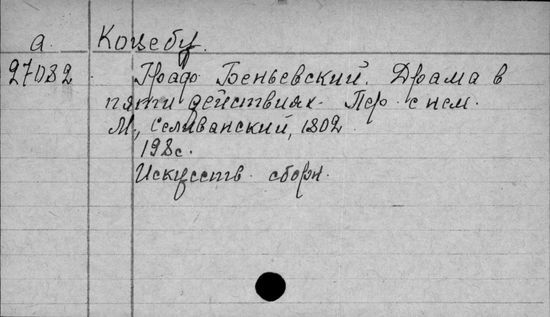 а. Коцебу.
27082 Граф Беньевский. Драма в
пяти действиях. Пер. с нем.
М., Селивановский, 1802.
198с.
Искусств. сборн.